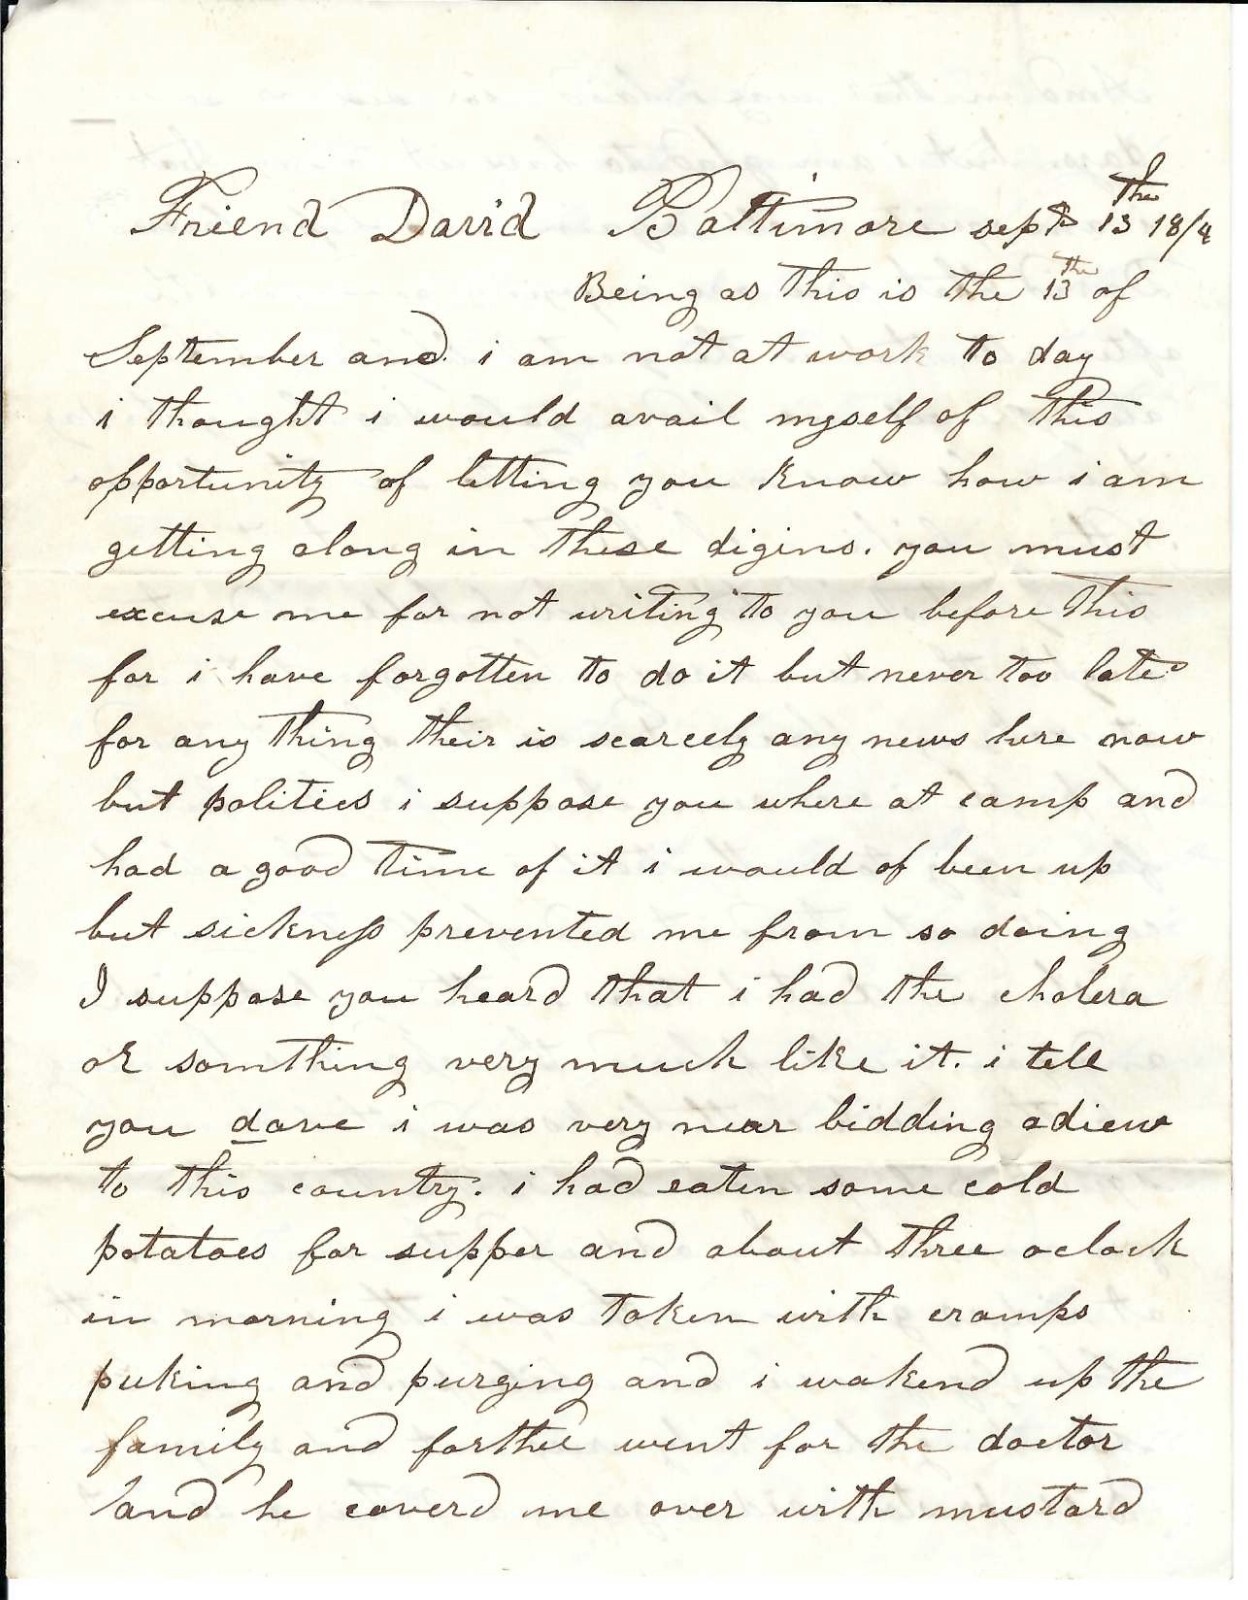 Friend David Baltimore sept 13 the 18/4
Being as this is the 13 the of
September and i am not at work to day
i thought i would avail myself of this
opportunity of letting you know how i am
getting along in these digins. you must
excuse me for not writing to you before this
for i have forgotten to do it but never too late
for any thing their is scarcely any news here now
but politics i suppose you where at camp and
had a good time of it i would of been up
but sickness prevented me from so doing
I suppose you heard that i had the cholera
or somthing very much like it. i tell
you dave i was very near bidding adiew
to this country. i had eaten some cold
potatoes for supper and about three oclock
in morning i was taken with cramps
puking and purging and i wakend up the
family and went for the doctor
and he coverd me over with mustard